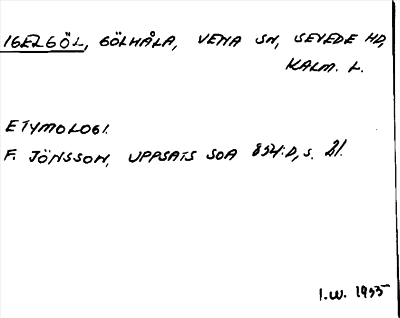 IGELGÖL, GÖLHÅLA, VENA SN, SEVEDE HD,
KALM. L.
ETYMOLOGI.
F. JÖNSSON, UPPSATS SOA 854:D, S. 21.
I.W. 1955